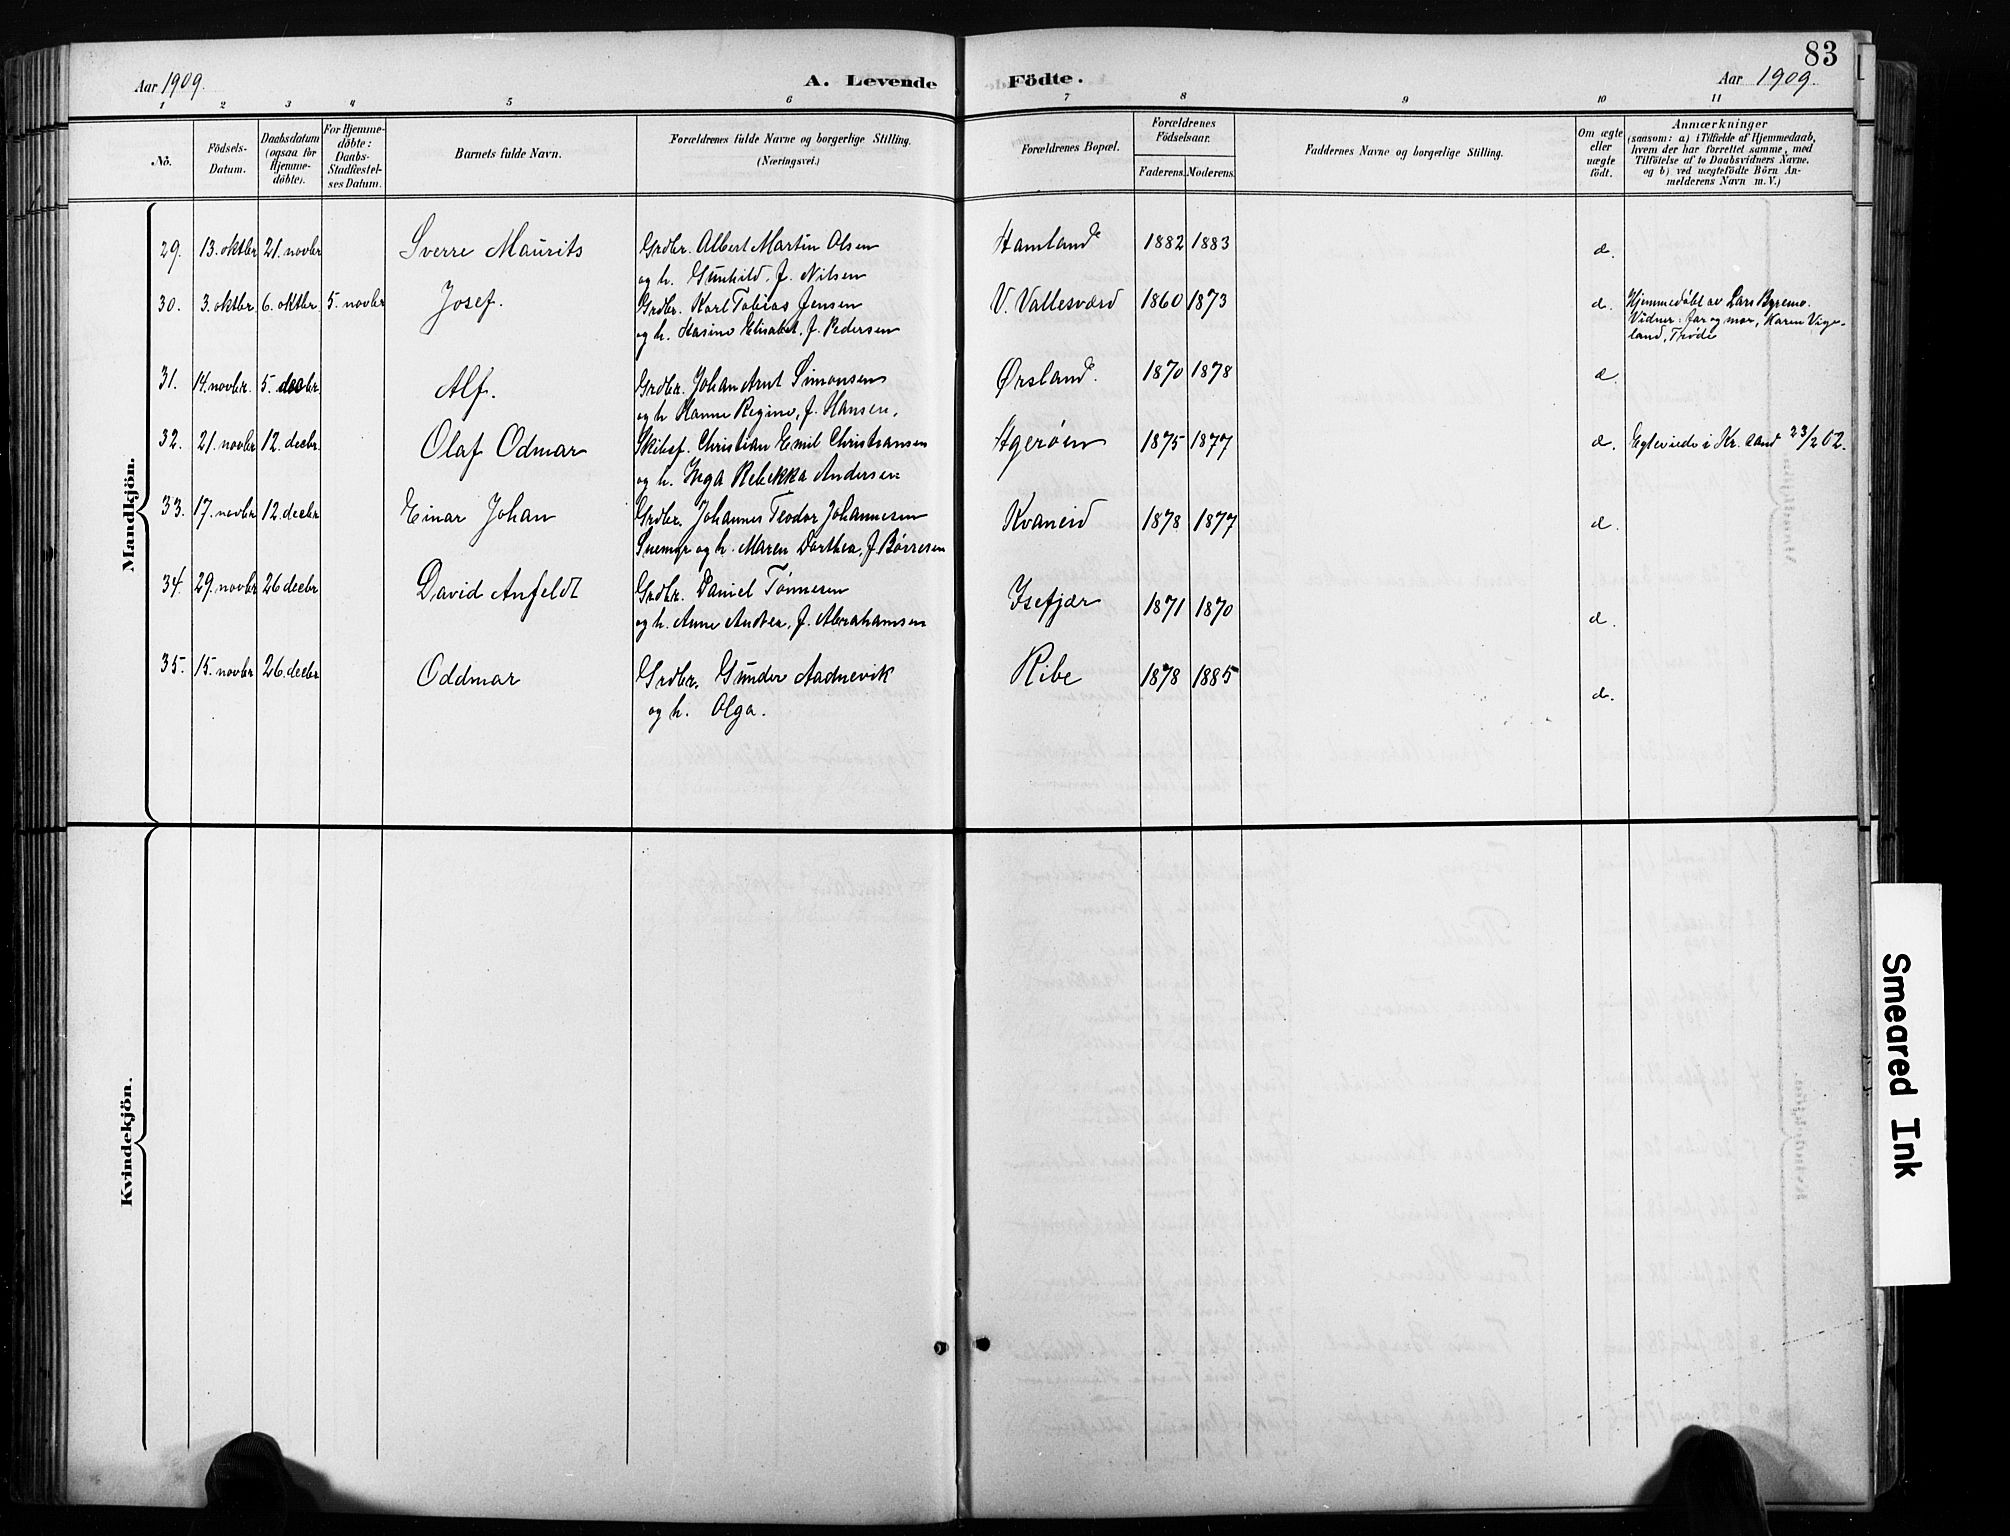 83
Aar 1909.
A. Levende
Födte.
Aar 1909.
1 2 3 4 5 6 7 8 9 10 11
No.
Födsels-
Datum.
Daabsdatum
(ogsaa for
Hjemme-
döbte).
For Hjemme-
döbte:
Daabs-
Stadfæstel-
ses Datum.
Barnets fulde Navn.
Forældrenes fulde Navne og borgerlige Stilling.
(Næringsvei.)
Forældrenes Bopæl.
Forældrenes
Födselsaar.
Faderens. Moderens.
Faddernes Navne og borgerlige Stilling.
Om ægte
eller
uægte
födt.
Anmærkninger
(saasom: a) i Tilfælde af Hjemmedaab,
hvem der har forrettet samme, med
Tilföielse af to Daabsvidners Navne,
og b) ved uægtefödte Börn An-
melderens Navn m. V.)
Mandkjön.
29. 13. oktbr 21. novbr Sverre Maurits Grdbr. Albert Martin Olsen Hamland 1882 1883 æ.
og h. Gunhild, f. Nilsen
30. 3. oktbr 6. oktbr 5. novbr Josef. Grdbr. Karl Tobias Jensen V. Vallesværd 1860 1873 æ. Hjemmedøbt av Lars Byremo.
og h. Hasine Elisabet, f. Pedersen Vidner: far og mor, Karen Vige-
land, Trøde
31. 14. novbr. 5. decbr. Alf. Grdbr. Johan Arnt Simonsen Ørsland. 1870 1878 æ.
og h Hanne Regine, f. Hansen.
32. 21. novbr 12. decbr. Olaf Odmar Skibsf. Christian Emil Christiansen Hgerøen 1875 1877 æ. Egteviede i Kr.sand 23/2 02.
og h. Inga Rebekka Andersen
33. 17. novbr 12. decbr Einar Johan Grdbr. Johannes Teodor Johannesen Kvaneid 1878 1877 æ.
Snemyr og h. Maren Dorthea, f. Børresen
34. 29. novbr 26 decbr David Anfeldt Grdbr. Daniel Tønnesen Isefjær 1871 1870 æ.
og h. Anne Andrea, f. Abrahamsen
35. 15. novbr 26. decbr Oddmar Grdbr. Gunder Aadnevik Ribe 1878 1885 æ.
og h. Olga.
Kvindekjön.
Smeared Ink